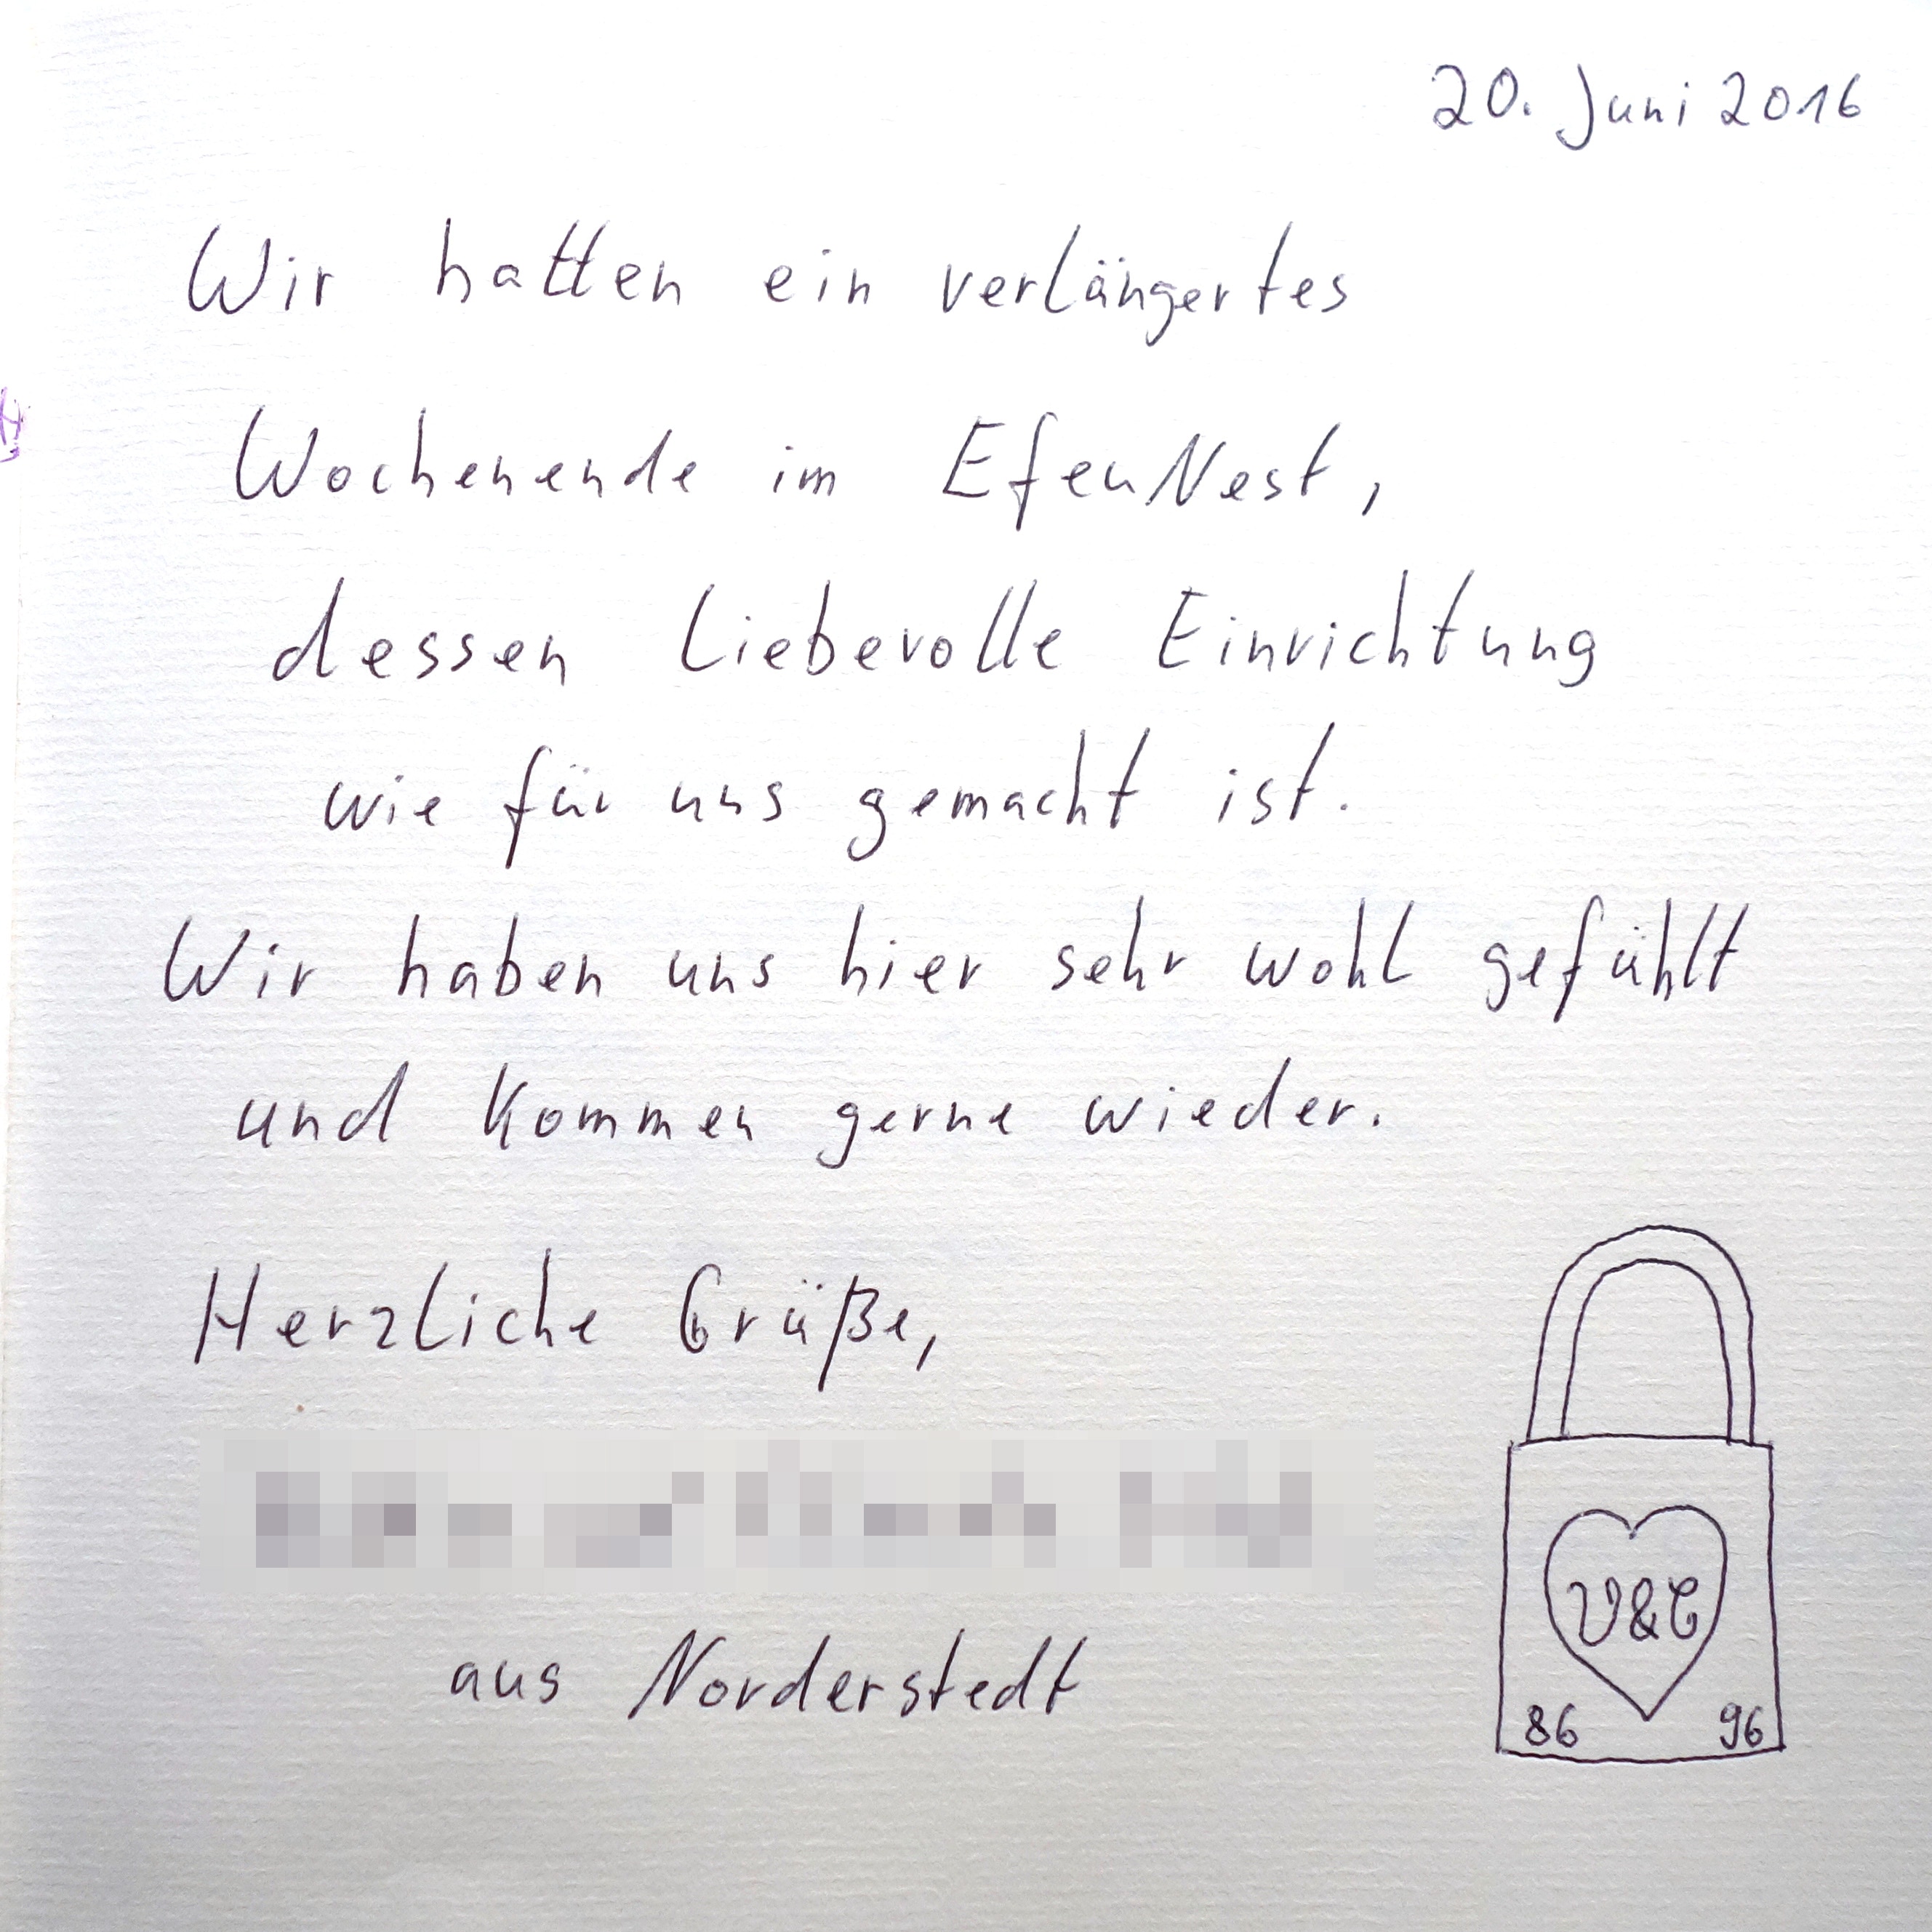 20. Juni 2016
Wir hatten ein verlängertes
Wochenende im EfeuNest,
dessen liebevolle Einrichtung
wie für uns gemacht ist.
Wir haben uns hier sehr wohl gefühlt
und kommen gerne wieder.
Herzliche Grüße,
aus Norderstedt
V&C
86 96